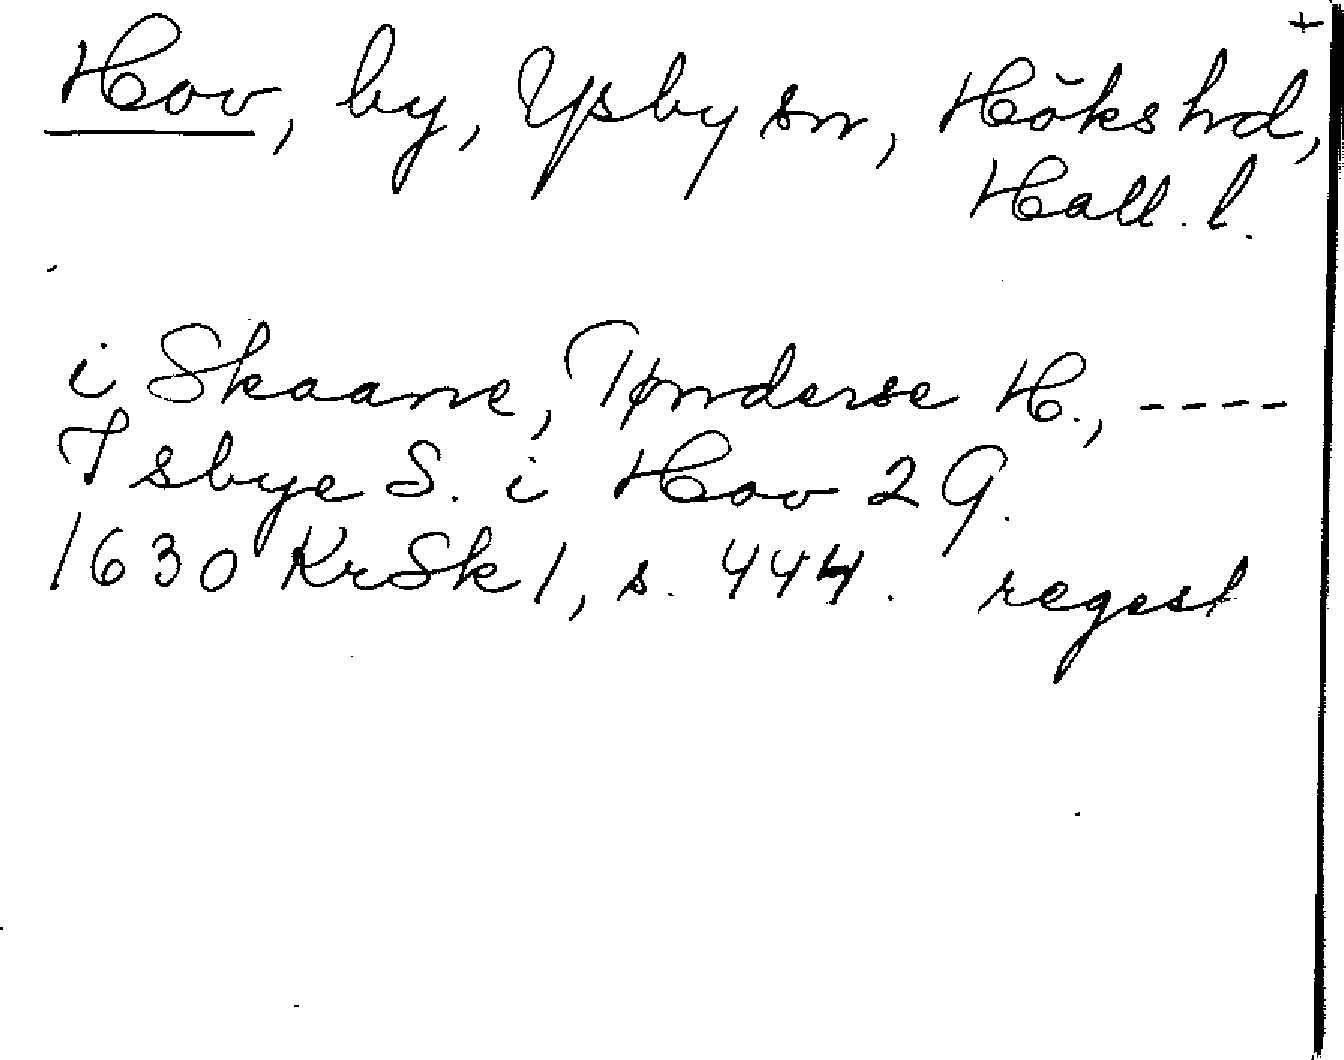 +
Hov, by, Ysby sn, Höks hrd,
Hall. l.
i Skaane, Tønderse H., ----
Isbye S. i Hov 2 G.
1630 KrSk 1, s. 444. regest